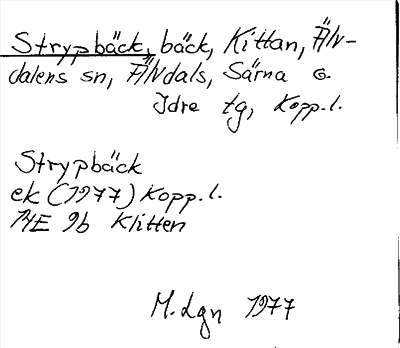 Strypbäck, bäck, Kittan, Älv-
dalens sn, Älvdals, Särna o.
Idre tg, Kopp.l.
Strypbäck
ek (1977) Kopp.l.
14E 9b Klitten
M. Lgn 1977